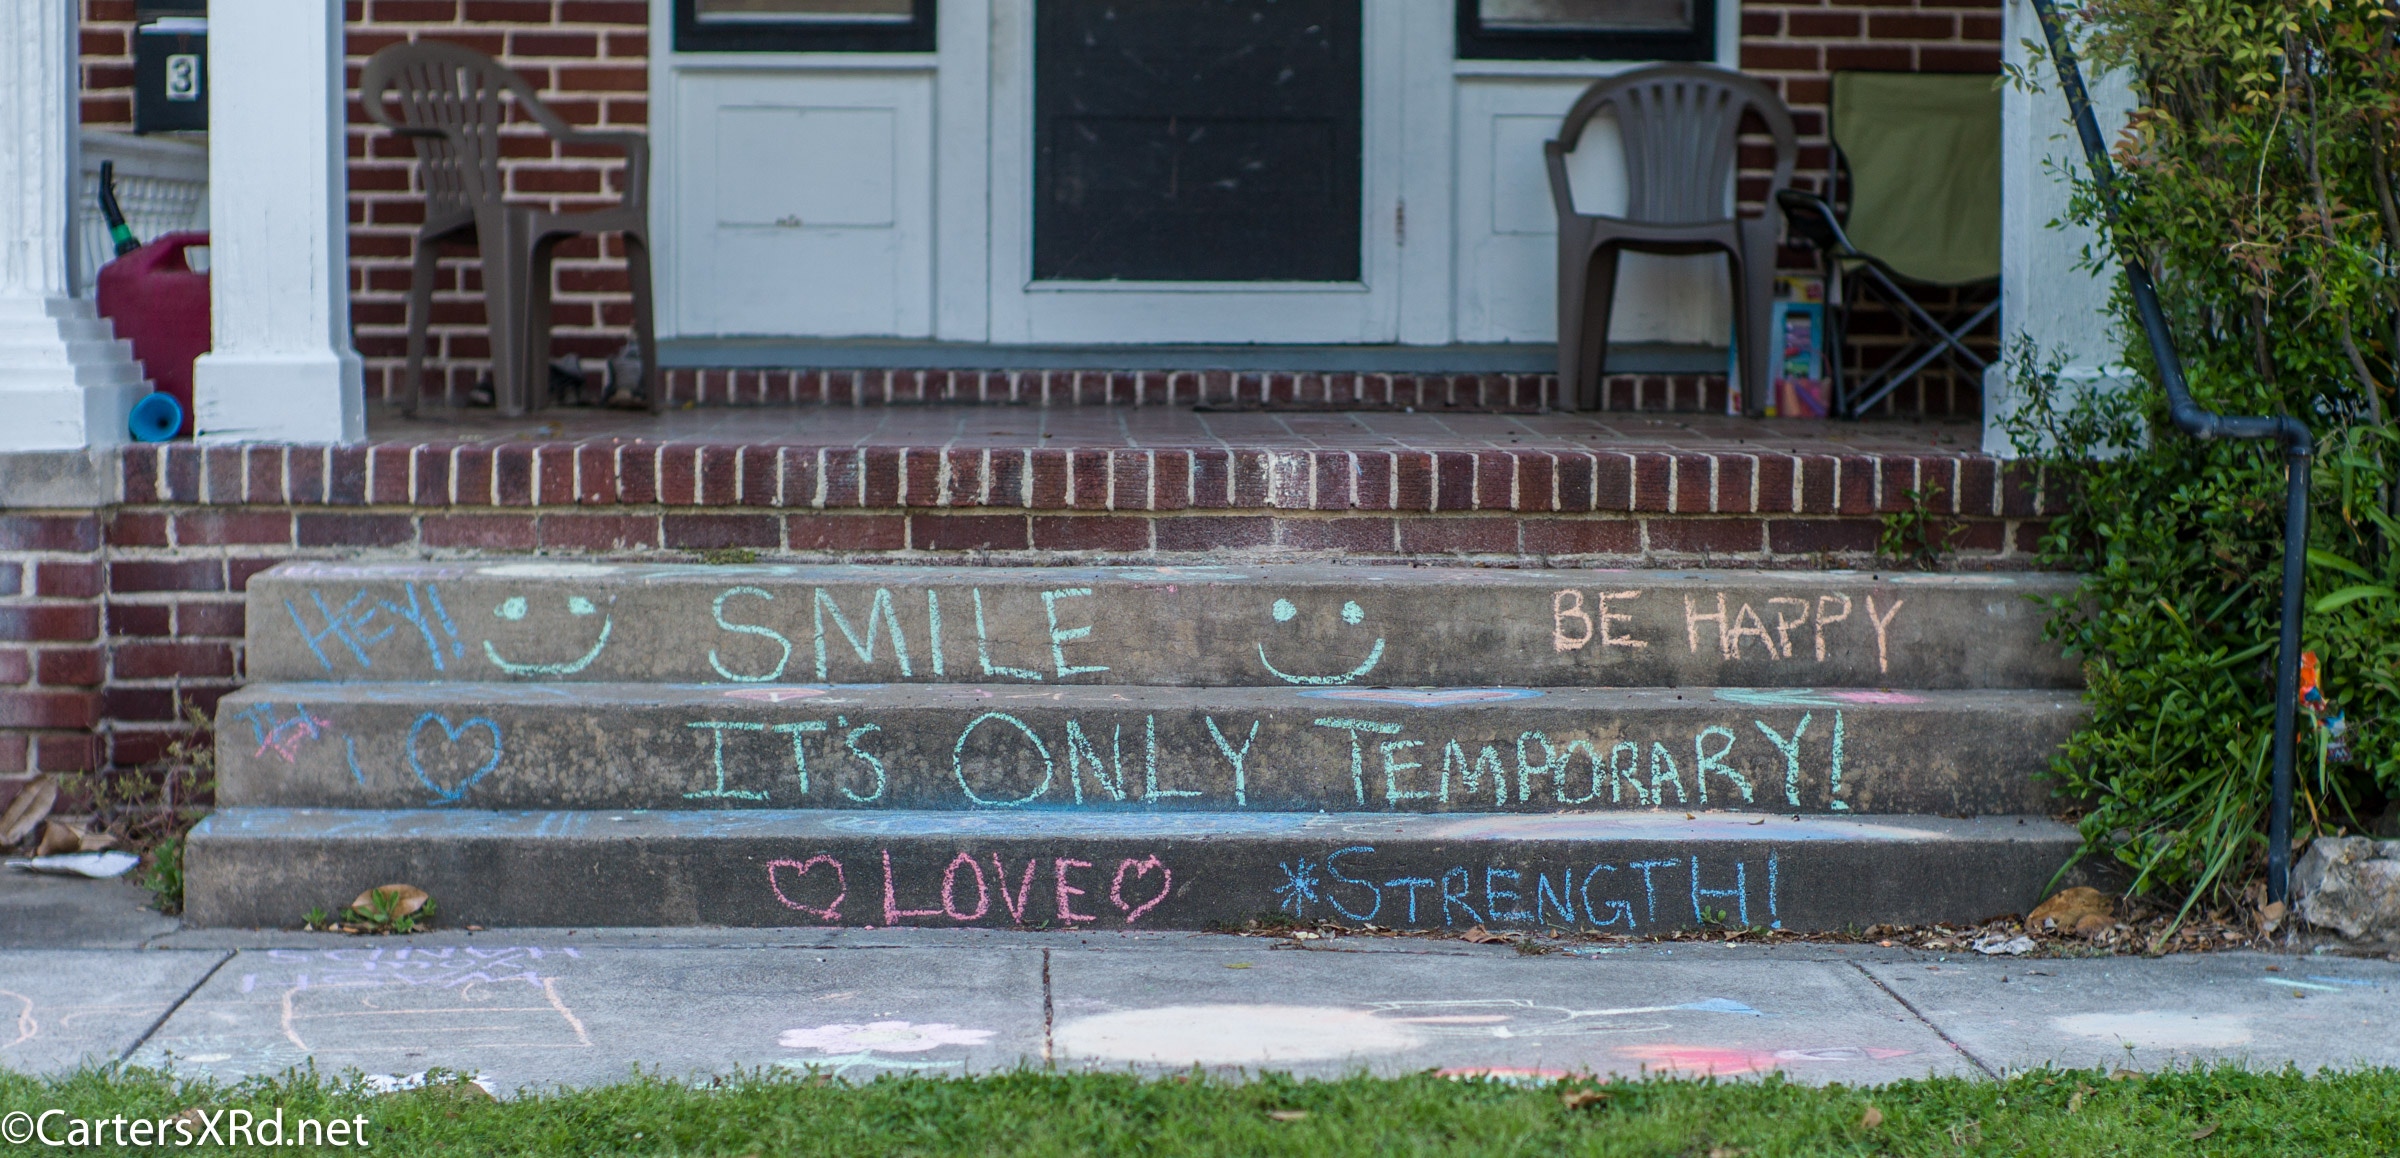 3
HEY! SMILE BE HAPPY
I
IT'S ONLY TEMPORARY!
LOVE *STRENGTH!
WASH
YOUR
HANDS
©CartersXRd.net